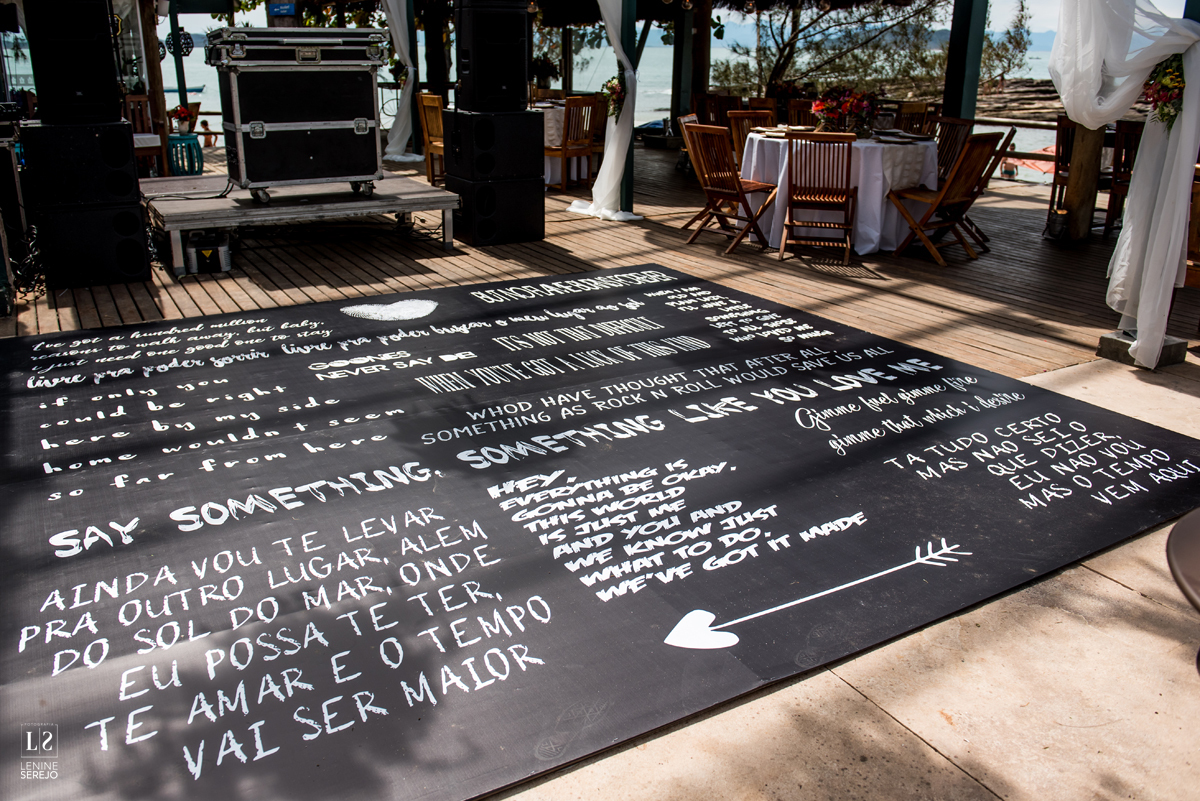 I've got a hundred million
reasons to walk away, but baby,
I just need one good one to stay
livre pra poder sorrir livre pra poder buscar o meu lugar ao sol
GOONIES
NEVER SAY DIE!
IT'S NOT THAT DIFFICULT
WHEN YOU'VE GOT A LUCK OF THIS KIND
WHEN I AM
OLD AND
I'LL WAIT
SOMEWHERE
if only you
could be right
here by my side
home wouldn't seem
so far from here
WHOD HAVE THOUGHT THAT AFTER ALL
SOMETHING AS ROCK N ROLL WOULD SAVE US ALL
SAY SOMETHING, SOMETHING LIKE YOU LOVE ME
Gimme fuel gimme fire
gimme that which i desire
TA TUDO CERTO
MAS NAO SEI O
QUE DIZER,
EU NAO VOU
MAS O TEMPO
VEM AQUI
HEY,
EVERYTHING IS
GONNA BE OKAY.
THIS WORLD
IS JUST ME
AND YOU AND
WE KNOW JUST
WHAT TO DO.
WE'VE GOT IT MADE
AINDA VOU TE LEVAR
PRA OUTRO LUGAR, ALÉM
DO SOL DO MAR, ONDE
EU POSSA TE TER,
TE AMAR E O TEMPO
VAI SER MAIOR
FOTOGRAFIA
LS
LENINE
SEREJO